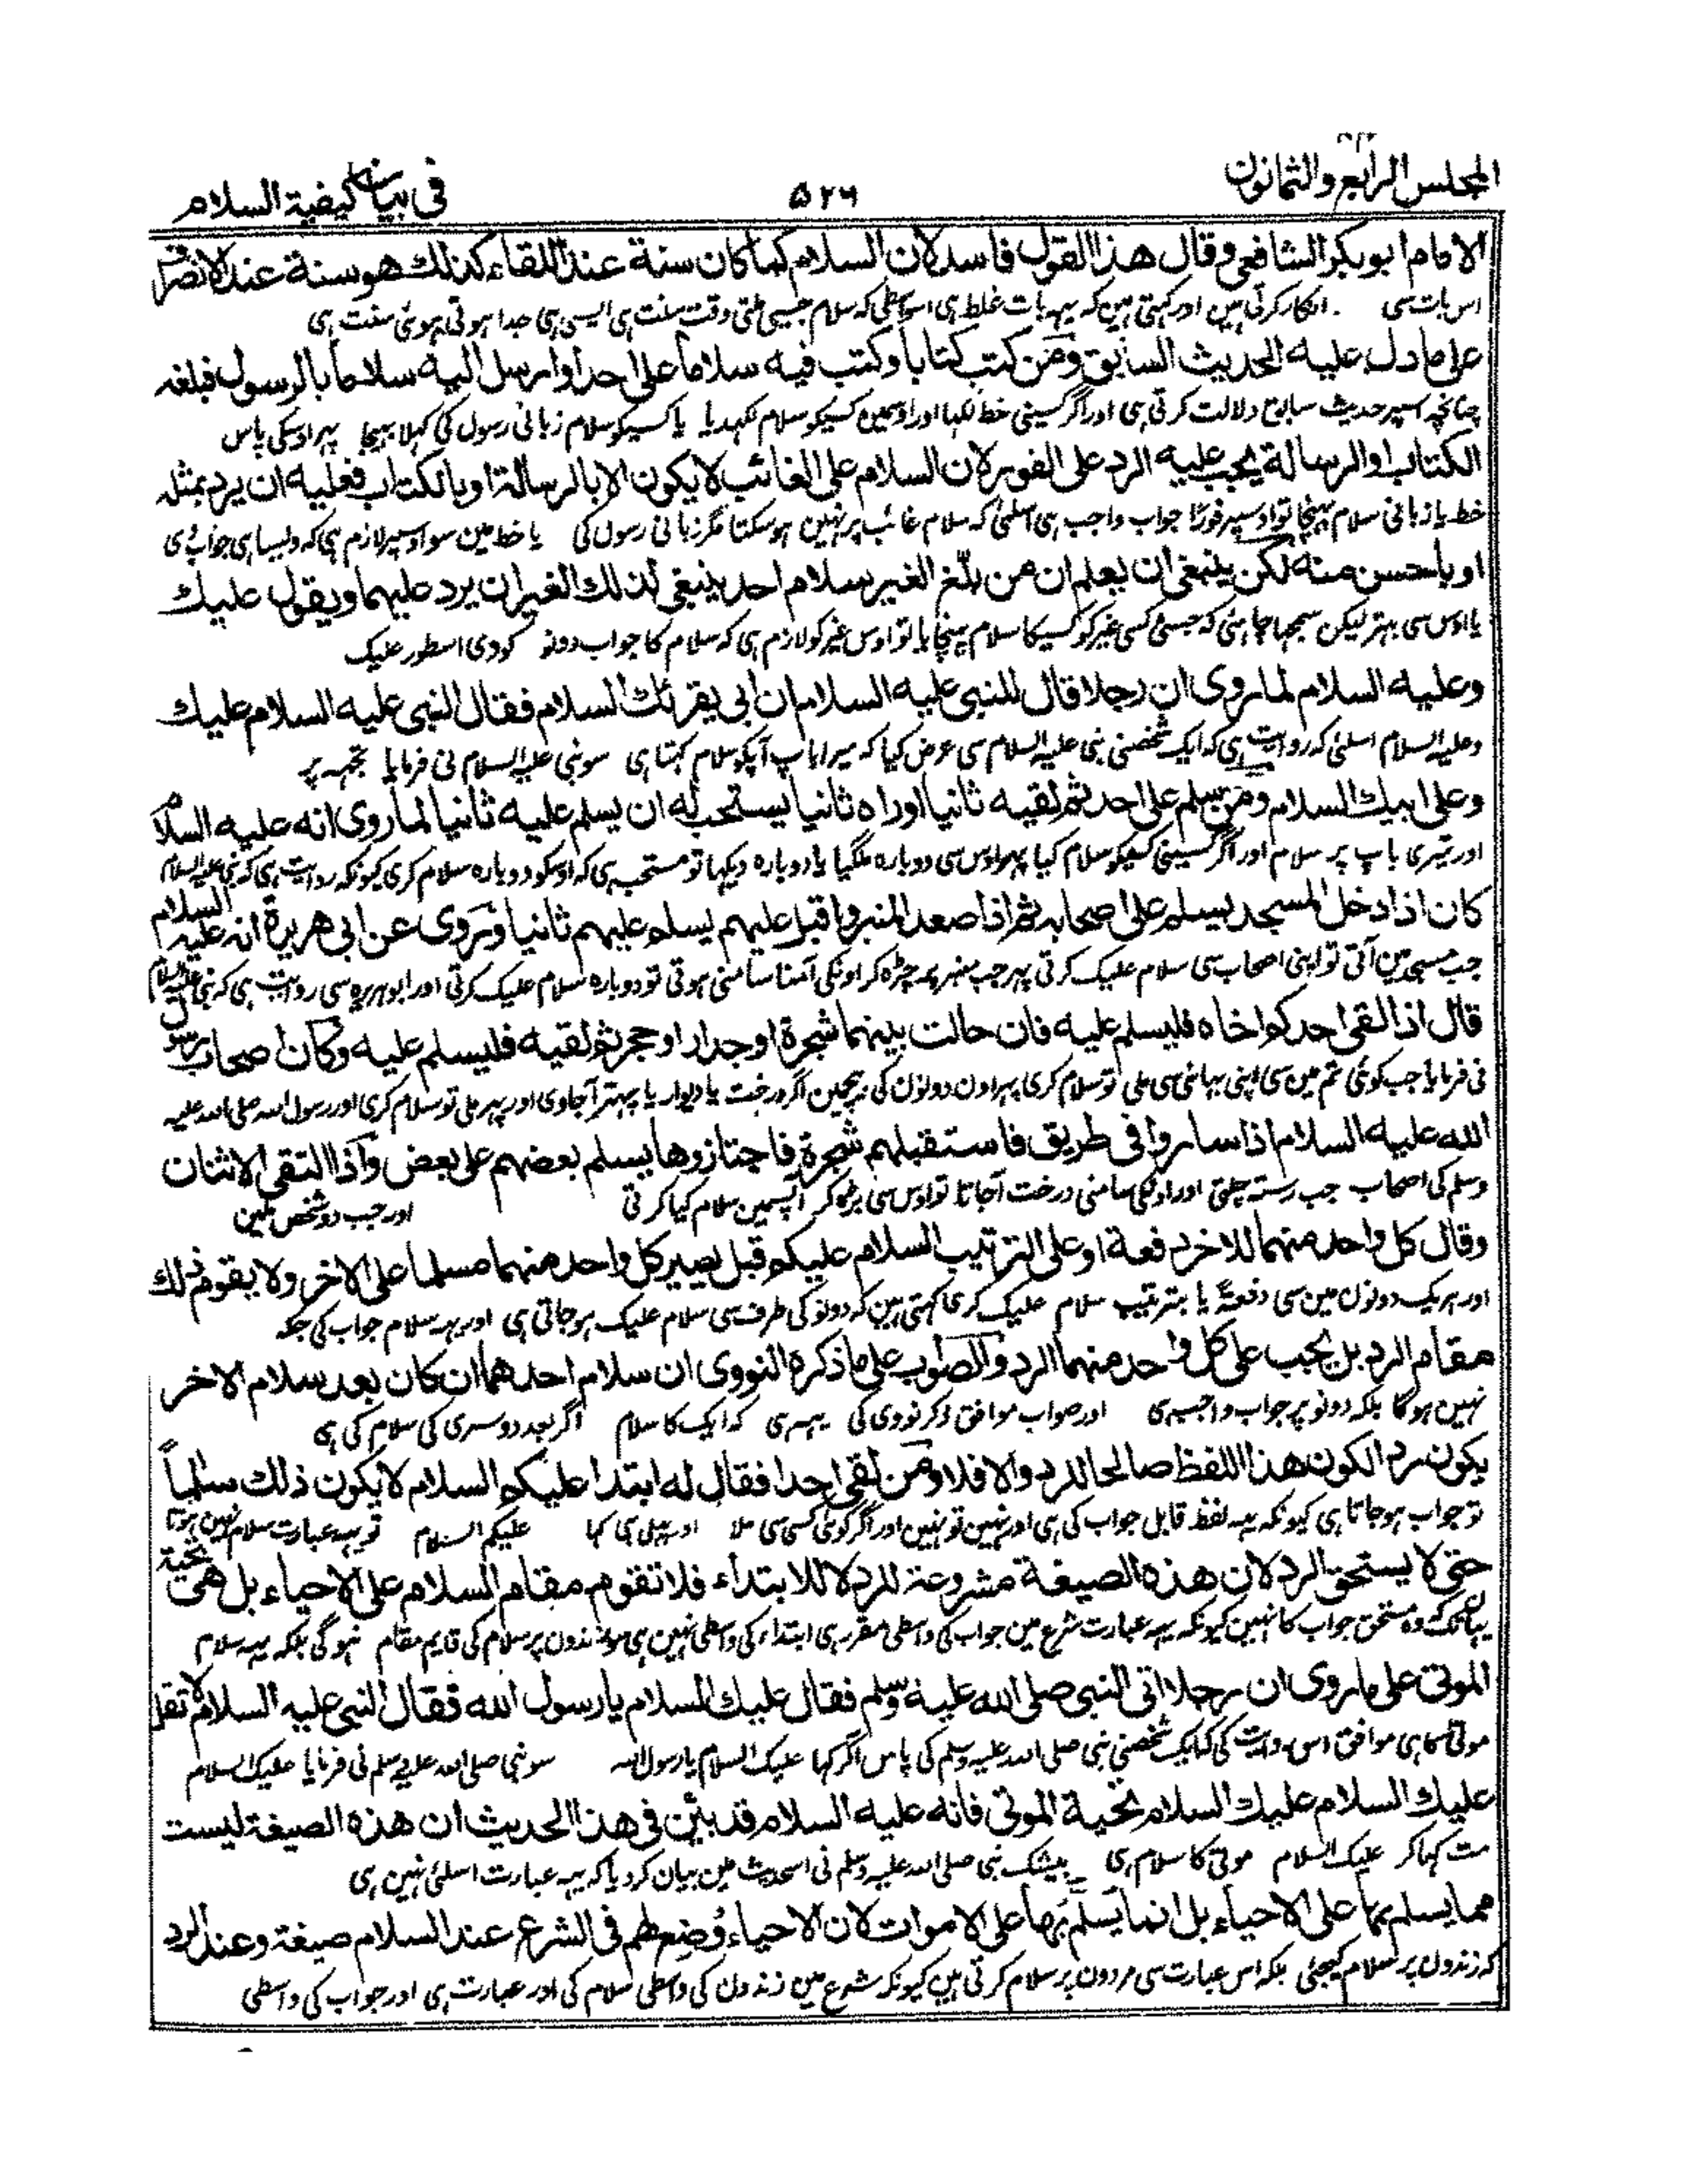 المجلس الرابع والثمانون
۵۲۶
فی بیان کیفیة السلام
الامام ابو بکر الشافعی وقال هذا القول فاسد لان السلام کما کان سنة عند اللقاء کذلك هو سنة عند الانصراف
اس بات سی انکار کرتی ہین اور کہتی ہین کہ یہہ بات غلط ہی اسواسطی کہ سلام جیسی ملتی وقت سنت ہی ایسی ہی جدا ہوتی ہوئی سنت ہی
علی ما دل علیه الحدیث السابق ومن کتب کتابا وکتب فیه سلاما علی احد او ارسل الیه سلاما بالرسول فبلغه
چنانچہ اسپر حدیث سابق دلالت کرتی ہی اور اگر کسینی خط لکہا اور اوسمین کسیکو سلام لکہدیا یا کسیکو سلام زبانی رسول کی کہلا بہیجا پہر اوسکی پاس
الکتاب او الرسالة یجب علیه الرد علی الفور لان السلام علی الغائب لا یکون الا بالرسالة او بالکتاب فعلیه ان یرد بمثله
خط یا زبانی سلام پہنچا تو اوسپر فورًا جواب واجب ہی اسلئی کہ سلام غائب پر نہین ہو سکتا مگر زبانی رسول کی یا خط مین سو اوسپر لازم ہی کہ ویسا ہی جواب دی
او باحسن منه لکن ینبغی ان یعلم ان من بلّغ الغیر سلام احد ینبغی لذلك الغیر ان یرد علیهما ویقول علیك
یا اوس سی بہتر لیکن سمجہا چاہئی کہ جسنی کسی غیر کو کسیکا سلام پہنچایا تو اوس غیر کو لازم ہی کہ سلام کا جواب دونو کو دی اسطور علیک
وعلیه السلام لما روی ان رجلا قال للنبی علیه السلام ان ابی یقرئك السلام فقال النبی علیه السلام علیك
وعلیہ السلام اسلئی کہ روایت ہی کہ ایک شخصنی نبی علیہ السلام سی عرض کیا کہ میرا باپ آپکو سلام کہتا ہی سو نبی علیہ السلام نی فرمایا تجہہ پر
وعلی ابیك السلام ومن سلم علی احد ثم لقیه ثانیا او راه ثانیا یستحب له ان یسلم علیه ثانیا لما روی انه علیه السلام
اور تیری باپ پر سلام اور اگر کسینی کسیکو سلام کیا پہر اوس سی دوبارہ ملگیا یا دوبارہ دیکہا تو مستحب ہی کہ اوسکو دوبارہ سلام کری کیونکہ روایت ہی کہ نبی علیہ السلام
کان اذا دخل المسجد یسلم علی اصحابه ثم اذا صعد المنبر واقبل علیهم یسلم علیهم ثانیا وروی عن ابی هریرة انه علیه السلام
جب مسجد مین آتی تو اپنی اصحاب سی سلام علیک کرتی پہر جب منبر پر چڑہ کر اونکی آمنا سامنی ہوتی تو دوبارہ سلام علیک کرتی اور ابوہریرہ سی روایت ہی کہ نبی علیہ السلام
قال اذا لقی احدکم اخاه فلیسلم علیه فان حالت بینهما شجرة او جدار او حجر ثم لقیه فلیسلم علیه وکان اصحاب رسول
نی فرمایا جب کوئی تم مین سی اپنی بہائی سی ملی تو سلام کری پہر اون دونون کی بیچمین اگر درخت یا دیوار یا پہتر آجاوی اور پہر ملی تو سلام کری اور رسول اللہ صلی اللہ علیہ
الله علیه السلام اذا ساروا فی طریق فاستقبلهم شجرة فاجتازوها یسلم بعضهم علی بعض واذا التقی الاثنان
وسلم کی اصحاب جب رستہ چلتی اور اونکی سامنی درخت آجاتا تو اوس سی بڑہکر آپسمین سلام کیا کرتی اور جب دو شخص ملین
وقال کل واحد منهما للاخر دفعة او علی الترتیب السلام علیکم قبل یصیر کل واحد منهما مسلما علی الاخر ولا یقوم ذلك
اور ہریک دونون مین سی دفعۃً یا بترتیب سلام علیک کری کہتی ہین کہ دونو کی طرف سی سلام علیک ہو جاتی ہی اور یہہ سلام جواب کی جگہ
مقام الرد بل یجب علی کل واحد منهما الرد والصواب علی ما ذکره النووی ان سلام احدهما ان کان بعد سلام الاخر
نہین ہوگا بلکہ دونو پر جواب واجب ہی اور صواب موافق ذکر نووی کی یہہ ہی کہ ایک کا سلام اگر بعد دوسری کی سلام کی ہی
یکون ردا لکون هذا اللفظ صالحا للرد والا فلا ومن لقی احدا فقال له ابتدا علیکم السلام لا یکون ذلك سلاماً
تو جواب ہو جاتا ہی کیونکہ یہہ لفظ قابل جواب کی ہی اور نہین تو نہین اور اگر کوئی کسی سی ملا اور پہلی ہی کہا علیکم السلام تو یہہ عبارت سلام نہین ہوتا
حتی لا یستحق الرد لان هذه الصیغة مشروعة للرد لا للابتداء فلا تقوم مقام السلام علی الاحیاء بل هی تحیة
یہانتک کہ وہ مستحق جواب کا نہین کیونکہ یہہ عبارت شرع مین جواب کی واسطی مقرر ہی ابتداء کی واسطی نہین ہی سو زندون پر سلام کی قایم مقام نہوگی بلکہ یہہ سلام
الموتی علی ما روی ان رجلا اتی النبی صلی الله علیه وسلم فقال علیك السلام یا رسول الله فقال النبی علیه السلام لا تقل
موتی کا ہی موافق اس روایت کی کہ ایک شخصنی نبی صلی اللہ علیہ وسلم کی پاس آکر کہا علیک السلام یا رسول اللہ سو نبی صلی اللہ علیہ وسلم نی فرمایا علیک السلام
علیك السلام علیك السلام تحیة الموتی فانه علیه السلام قد بیّن فی هذا الحدیث ان هذه الصیغة لیست
مت کہا کر علیک السلام موتی کا سلام ہی بیشک نبی صلی اللہ علیہ وسلم نی اسحدیث مین بیان کر دیا کہ یہہ عبارت اسلئی نہین ہی
مما یسلم بها علی الاحیاء بل انما یسلم بها علی الاموات لان الاحیاء وُضِع لهم فی الشرع عند السلام صیغة وعند الرد
کہ زندون پر سلام کیجئی بلکہ اس عبارت سی مردون پر سلام کرتی ہین کیونکہ شرع مین زندون کی واسطی سلام کی اور عبارت ہی اور جواب کی واسطی